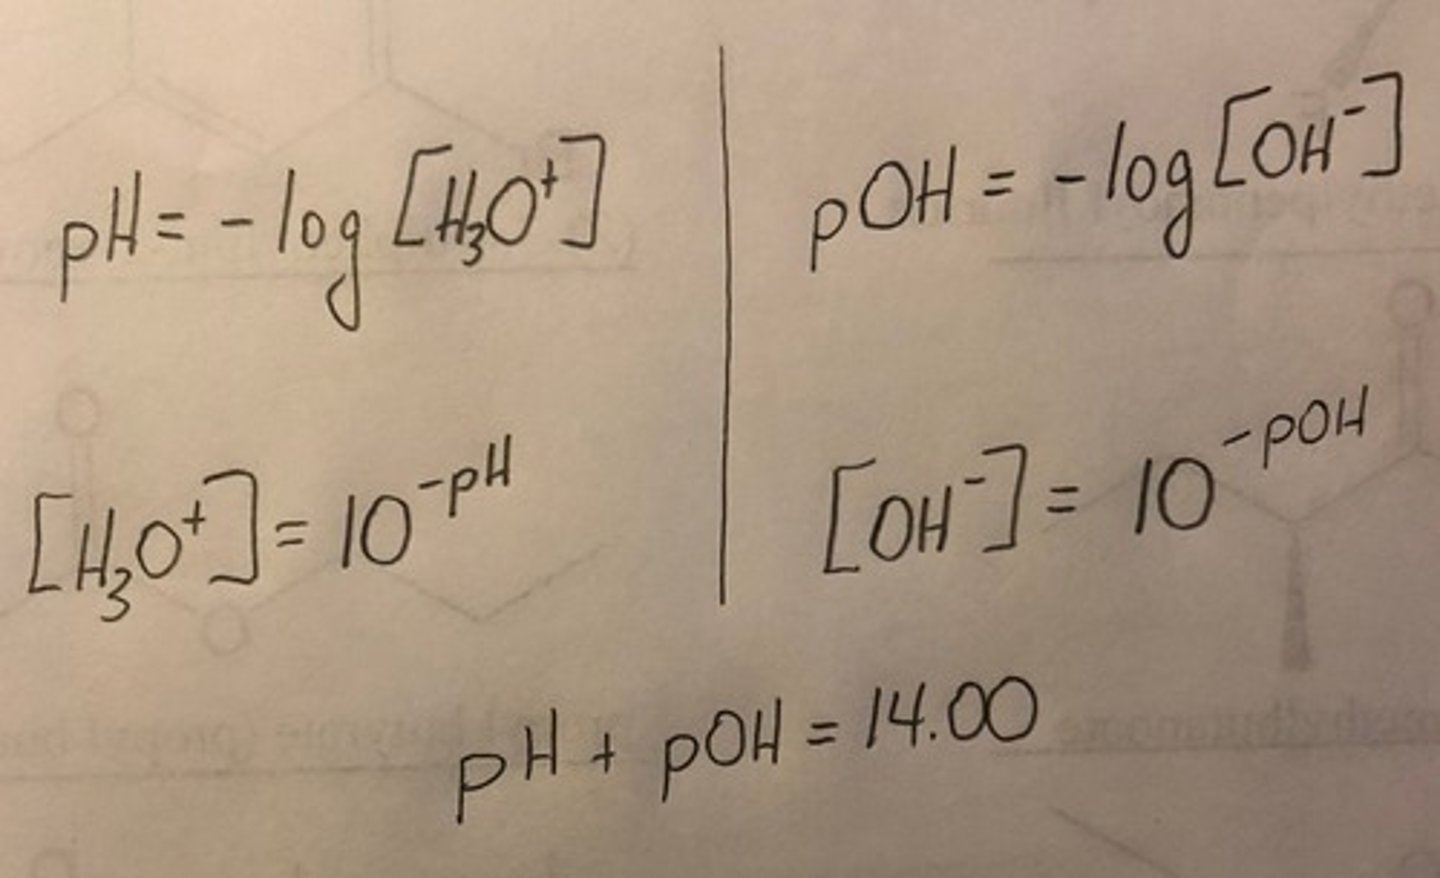 pH = - log [H₃O⁺]
[H₃O⁺] = 10⁻ᵖᴴ
pOH = - log [OH⁻]
[OH⁻] = 10⁻ᵖᴼᴴ
pH + pOH = 14.00